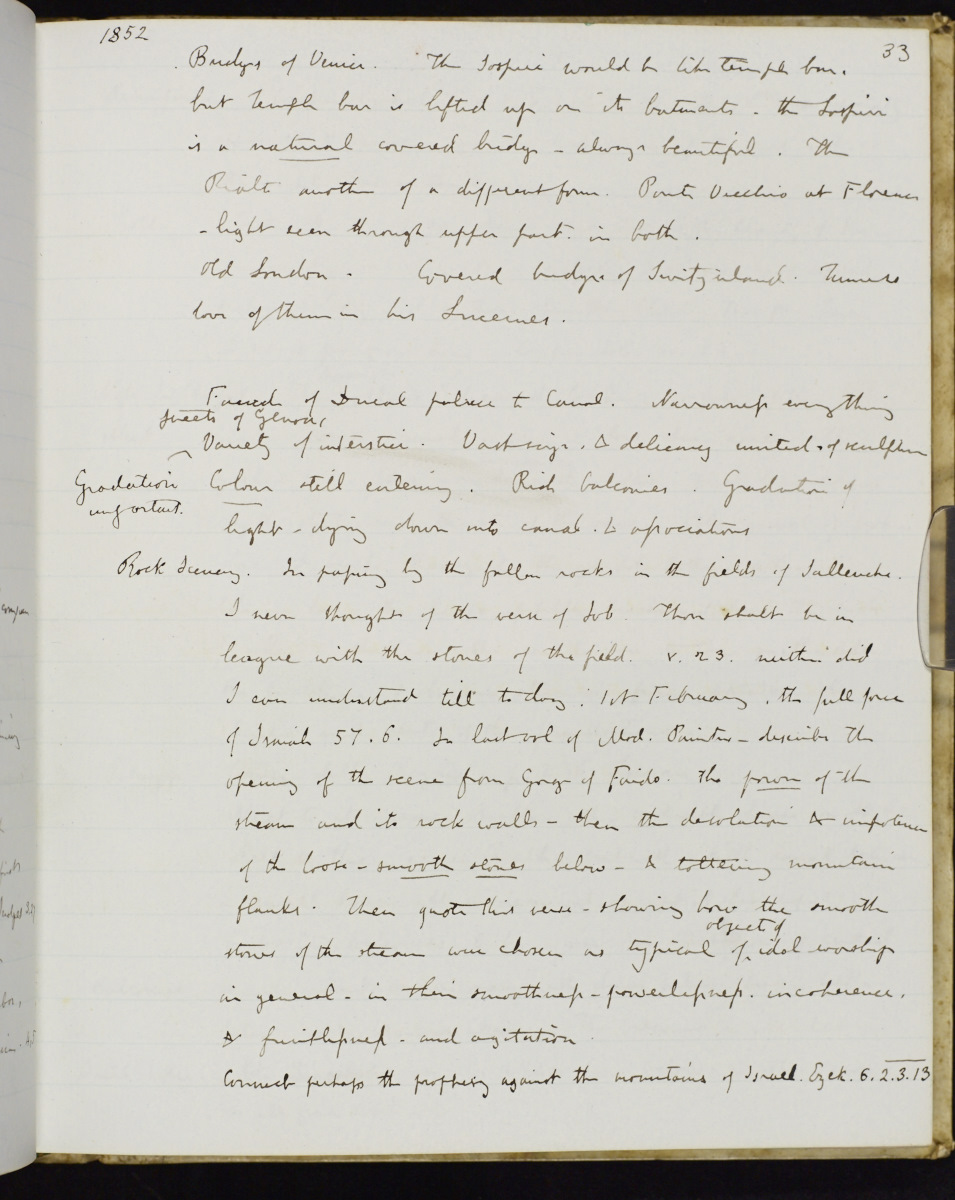 1852
33
Bridges of Venice. The Sospiri would be like temple bar.
but temple bar is lifted up on its butments - the Sospiri
is a natural covered bridge - always beautiful. The
Rialto another of a different form. Ponte Vecchio at Florence
- light seen through upper part. in both.
Old London. Covered bridges of Switzerland. Turners
love of them in his Lucernes.
Facade of Ducal palace to Canal. Narrowness everything
streets of Genoa,
Variety of interstice. Vast size. & delicacy united. of sculpture
Gradation
important.
Colour still entering. Rich balconies. Gradation of
light - dying down into canal. & associations
Rock Scenery. In passing by the fallen rocks in the fields of Sallenche.
I never thought of the verse of Job. Thou shalt be in
league with the stones of the field. v. 23. neither did
I ever understand till today. 1st February. the full force
of Isaiah 57. 6. In last vol of Mod. Painters - describe the
opening of the scene from Gorge of Faido. The power of the
stream and its rock walls - then the desolation & impotence
of the loose - smooth stones below - & tottering mountain
flanks. Then quote this verse - showing how the smooth
object of
stones of the stream were chosen as typical of idol-worship
in general - in their smoothness - powerlessness. incoherence.
& fruitlessness - and agitation.
Connect perhaps the prophecy against the mountains of Israel. Ezek. 6. 2. 3. 13